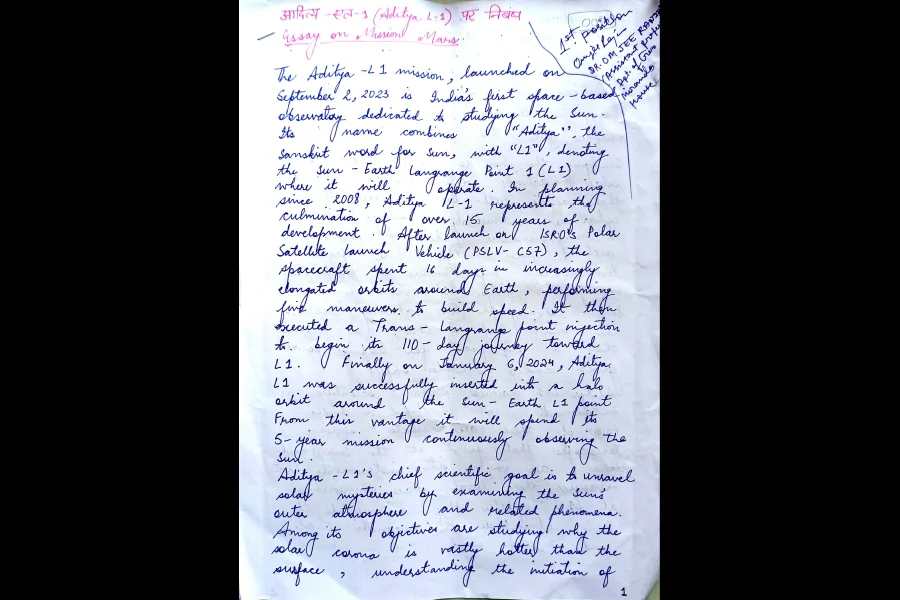 आदित्य-एल-1 (Aditya L-1) पर निबंध
Essay on Mission Mars.
1st position
DR. OM JEE RANJAN
(Assistant Professor
Miranda
House
The Aditya-L1 mission, launched on
September 2, 2023 is India's first space-based
observatory dedicated to studying the Sun.
Its name combines "Aditya", the
Sanskrit word for Sun, with "L1", denoting
the Sun-Earth Langrange Point 1 (L1)
where it will operate. In planning
since 2008, Aditya L-1 represents the
culmination of over 15 years of
development. After launch on ISRO's Polar
Satellite Launch Vehicle (PSLV-C57), the
spacecraft spent 16 days in increasingly
elongated orbits around Earth, performing
five maneuvers to build speed. It then
executed a Trans-Langrange point injection
to begin its 110-day journey toward
L1. Finally on January 6, 2024, Aditya
L1 was successfully inserted into a halo
orbit around the Sun-Earth L1 point
From this vantage it will spend its
5-year mission continuously observing the
Sun.
Aditya-L1's chief scientific goal is to unravel
solar mysteries by examining the Sun's
outer atmosphere and related phenomena.
Among its objectives are studying why the
solar corona is vastly hotter than the
surface, understanding the initiation of
1